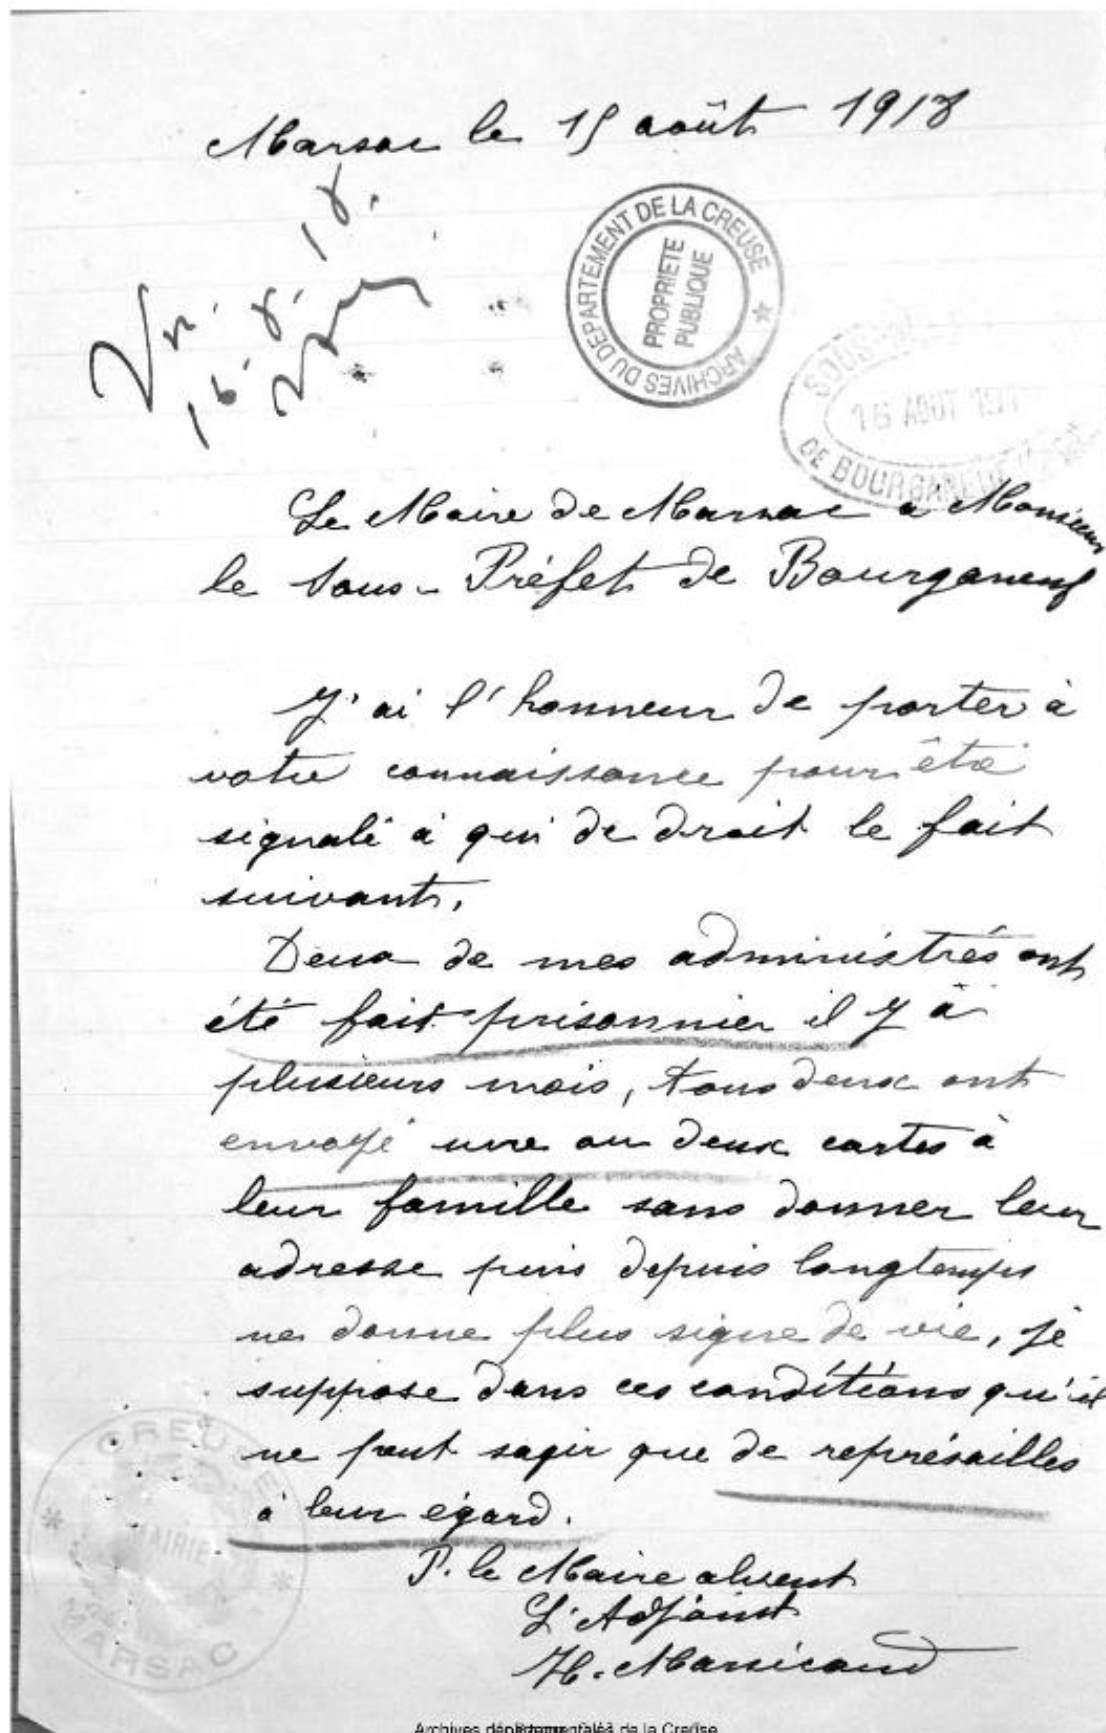 Marsac le 15 août 1918
Vu.
16.8.18.
ARCHIVES DU DEPARTEMENT DE LA CREUSE
PROPRIETE
PUBLIQUE
16 AOUT
DE BOURGANEUF
Le Maire de Marsac à Monsieur
le Sous-Préfet de Bourganeuf
J'ai l'honneur de porter à
votre connaissance pour été
signalé à qui de droit le fait
suivant,
Deux de mes administrés ont
été fait prisonnier il y à
plusieurs mois, tous deux ont
envoyé une ou deux cartes à
leur famille sans donner leur
adresse puis depuis longtemps
ne donne plus signe de vie, je
suppose dans ces conditions qu'il
ne peut sagir que de représailles
à leur égard.
P. le Maire absent
L'Adjoint
CREUSE
MAIRIE
MARSAC
Archives départementales de la Creuse